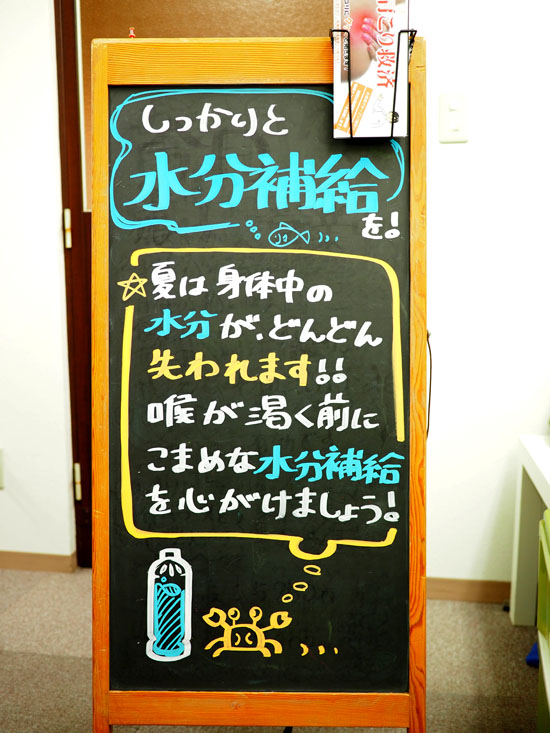 こり救済
しっかりと
水分補給
を!
☆夏は身体中の
水分が、どんどん
失われます!!
喉が渇く前に
こまめな水分補給
を心がけましょう!